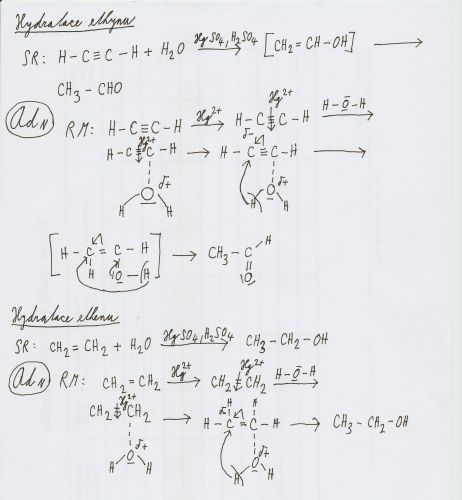 Hydratace ethynu
SR: H-C≡C-H + H₂O HgSO₄, H₂SO₄ → [CH₂=CH-OH] →
CH₃-CHO
AdN RM: H-C≡C-H Hg²⁺ → H-C≡C-H Hg²⁺ H-O-H →
H-C≡C-H Hg²⁺ → H-C≡C-H δ- →
O δ+ O δ+
H H H H
[H-C=C-H → CH₃-C-H
H O-H] O
Hydratace ethenu
SR: CH₂=CH₂ + H₂O HgSO₄, H₂SO₄ → CH₃-CH₂-OH
AdN RM: CH₂=CH₂ Hg²⁺ → CH₂=CH₂ Hg²⁺ H-O-H →
H H
CH₂=CH₂ Hg²⁺ → H-C=C-H δ- → CH₃-CH₂-OH
O δ+ O δ+
H H H H